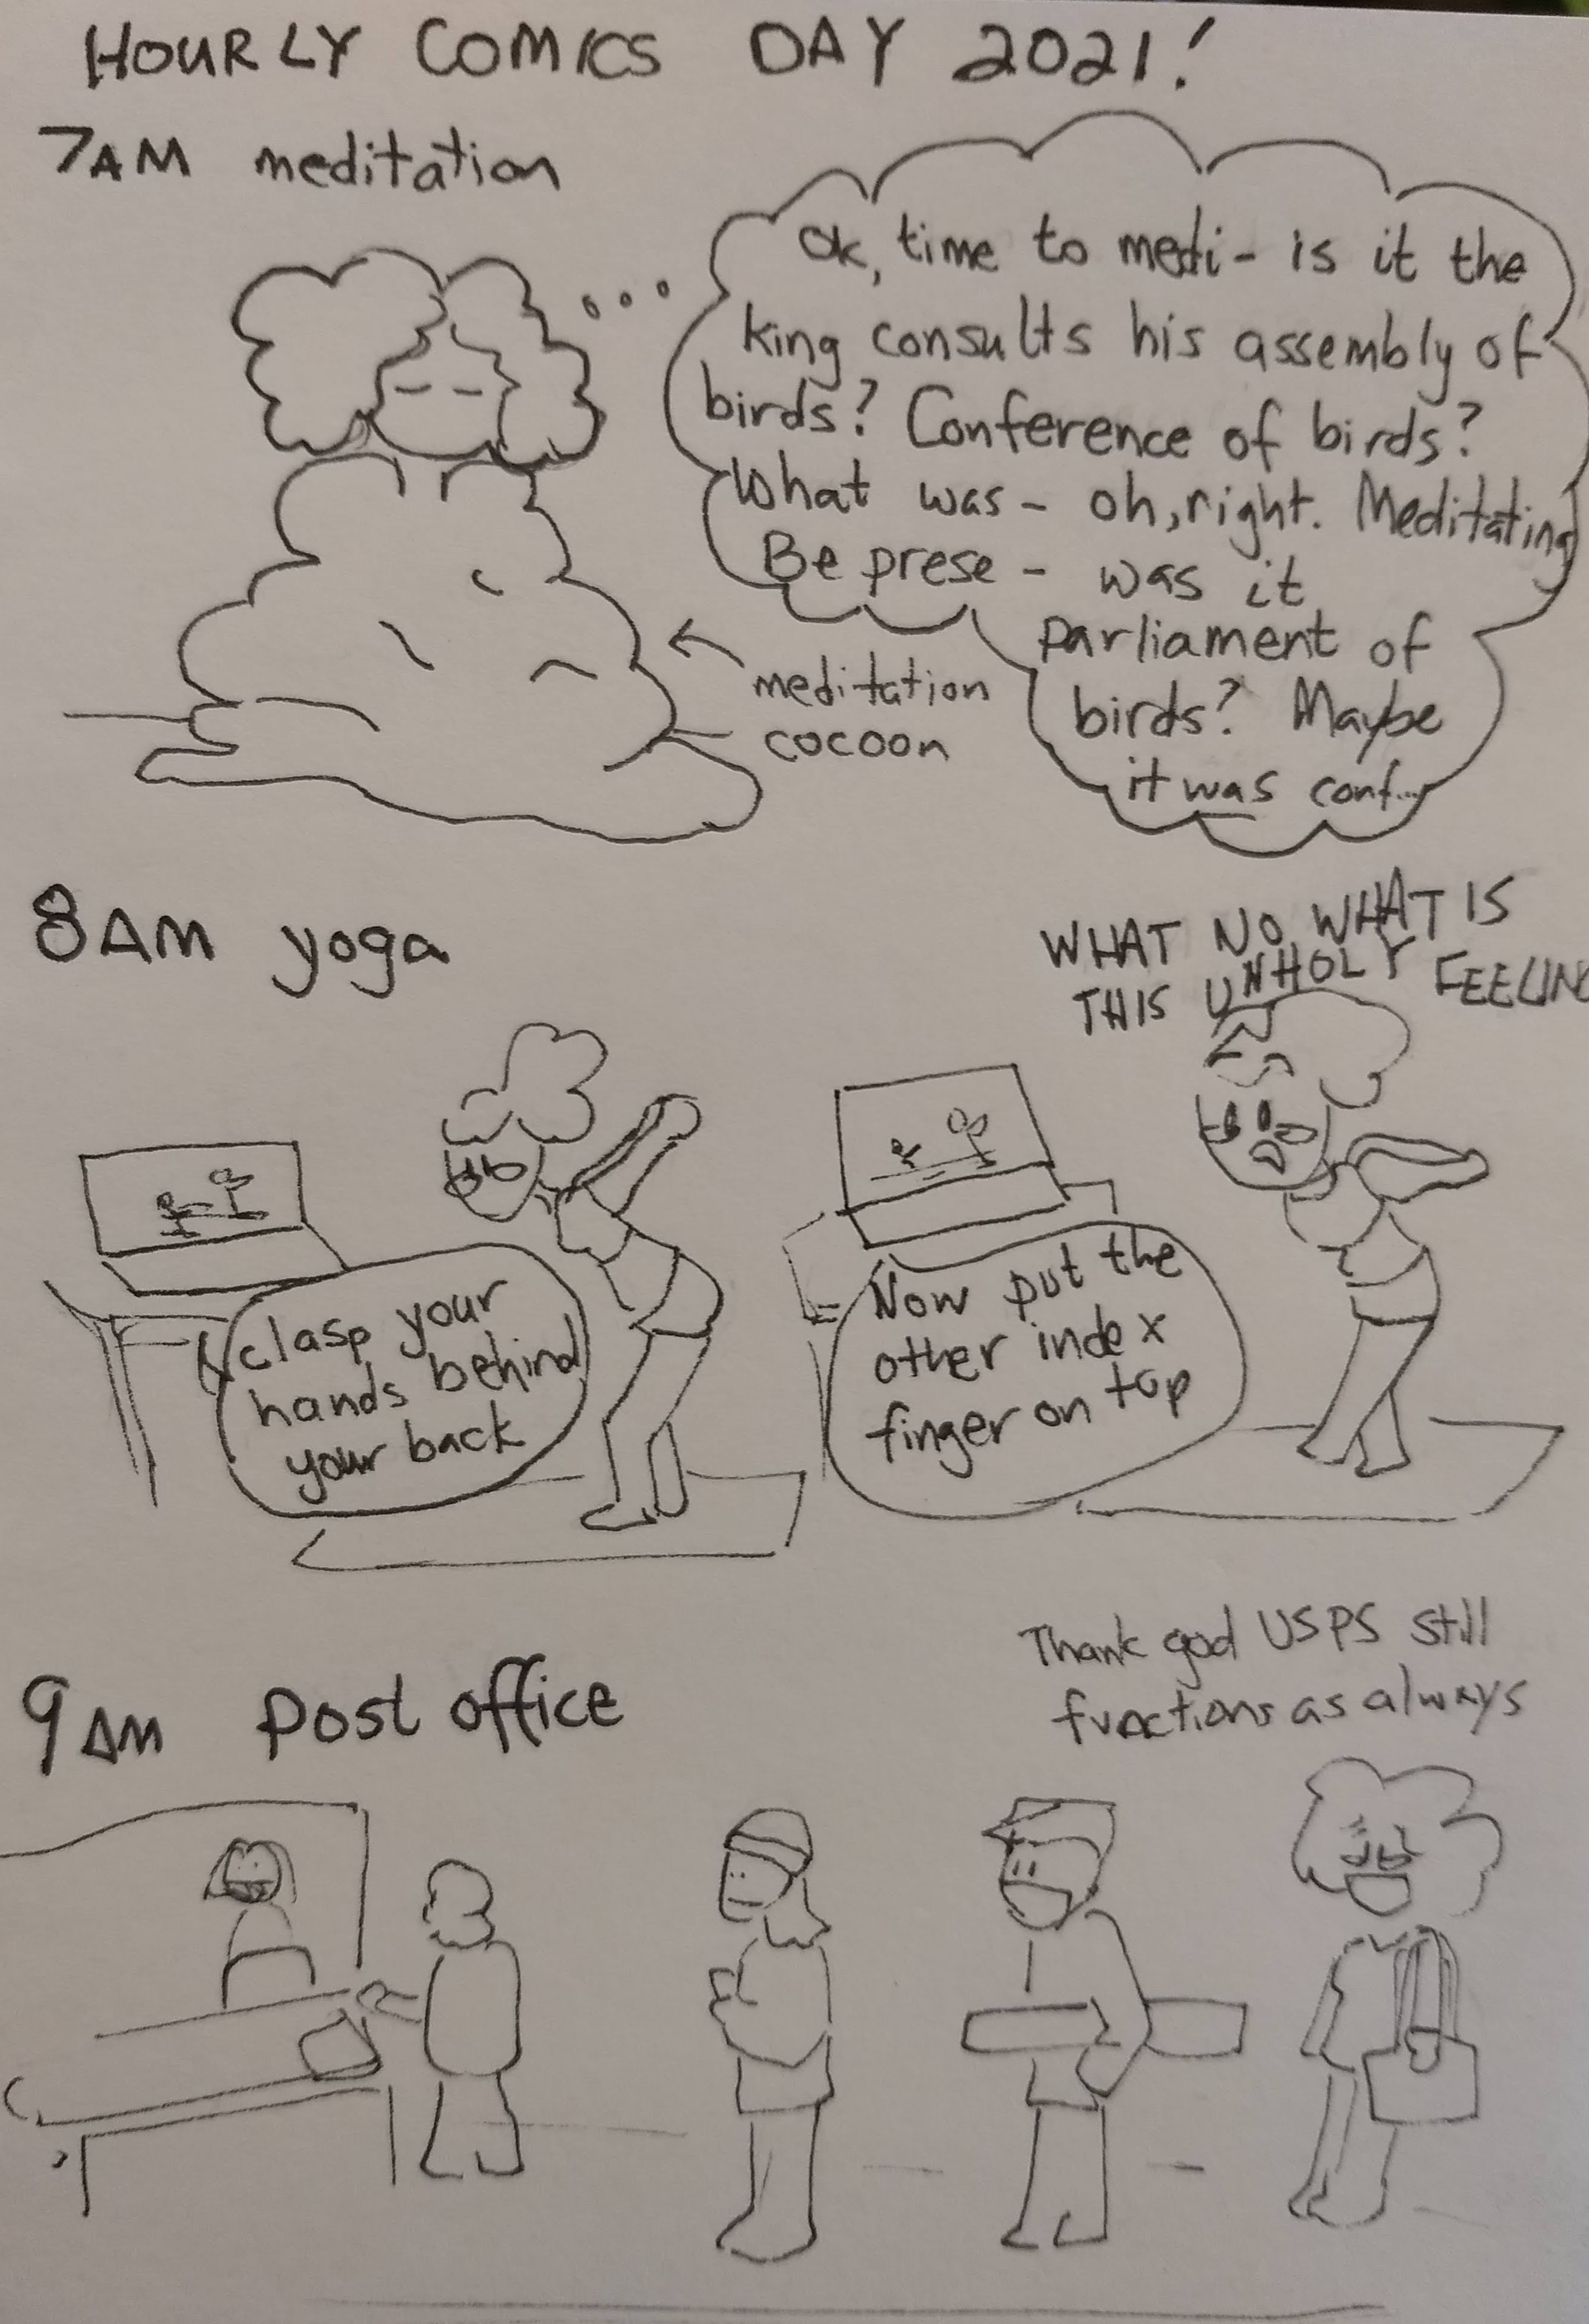 HOURLY COMICS DAY 2021!
7AM meditation
Ok, time to medi- is it the
king consults his assembly of
birds? Conference of birds?
What was - oh, right. Meditating
Be prese - was it
parliament of
birds? Maybe
it was conf...
meditation
cocoon
8AM yoga
clasp your
hands behind
your back
WHAT NO WHAT IS
THIS UNHOLY FEELING
Now put the
other index
finger on top
9AM Post office
Thank god USPS still
functions as always